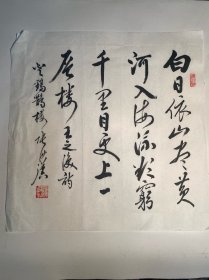 白日依山尽黄
河入海流欲穷
千里目更上一
层楼 王之涣诗
登鹳鹊楼